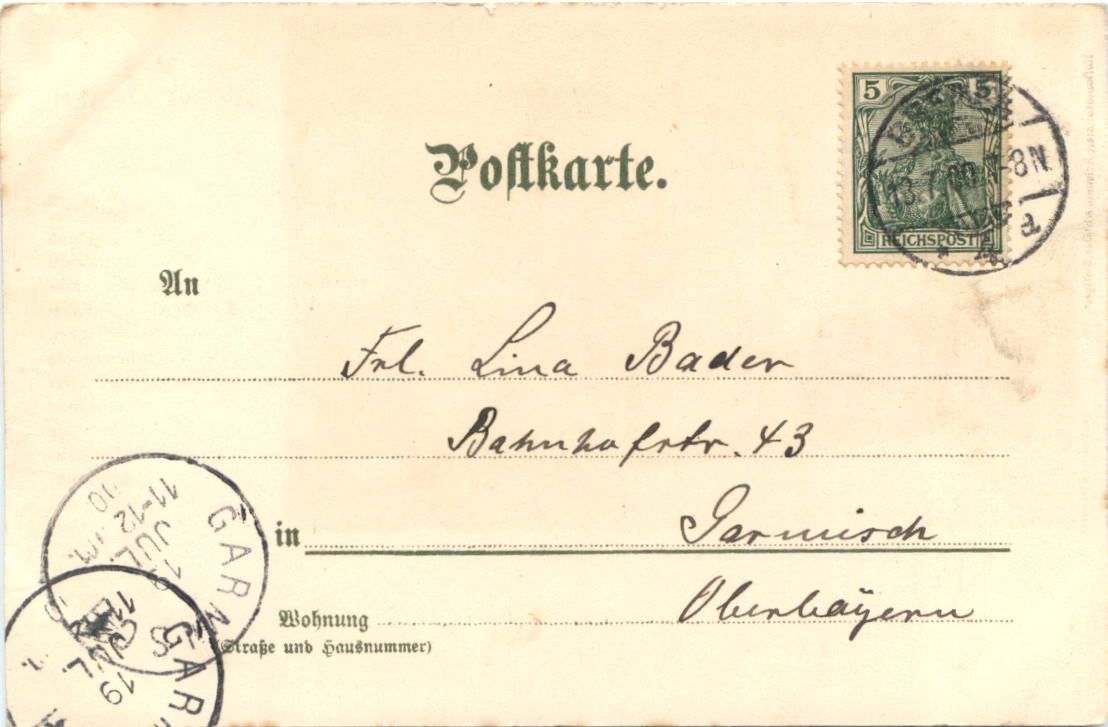 Postkarte.
5 5
REICHSPOST
7-8N
a
An
Frl. Lina Bader
Bahnhofstr. 43
in Garmisch
Oberbayern
Wohnung
(Straße und Hausnummer)
GARM
19
JUL
11-12
00
GAR
19
JUL.